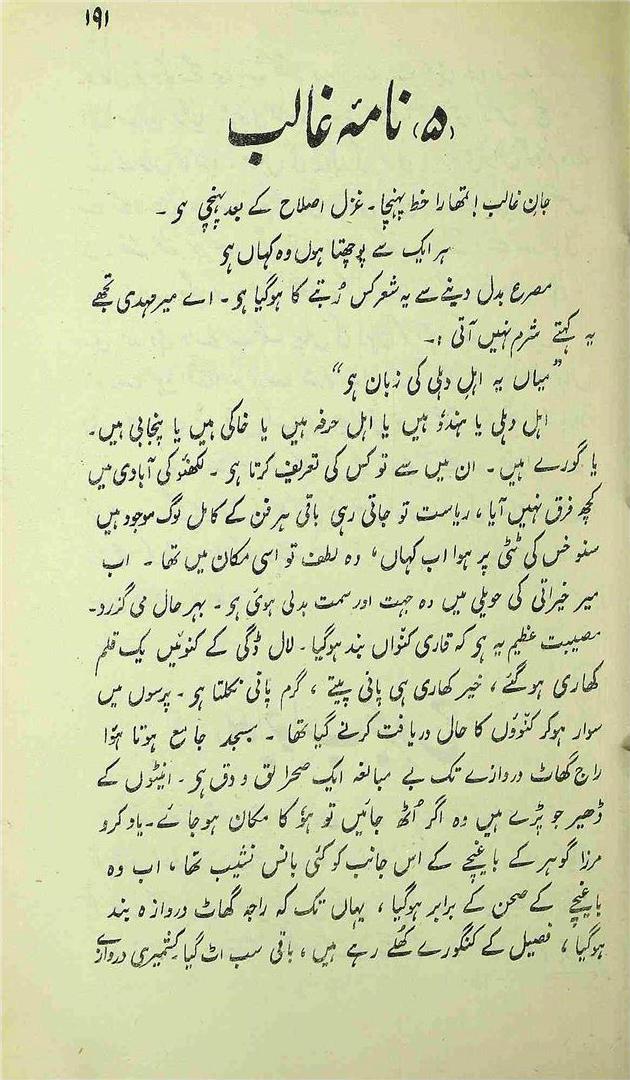 ۱۹۱
(۵) نامۂ غالب
جانِ غالب! تمھارا خط پہنچا۔ غزل اصلاح کے بعد پہنچتی ہو۔
ہر ایک سے پوچھتا ہوں وہ کہاں ہو
مصرع بدل دینے سے یہ شعر کس رُتبے کا ہوگیا ہو۔ اے میر مہدی تجھے
یہ کہتے شرم نہیں آتی :۔
”میاں یہ اہلِ دہلی کی زبان ہو“
اہل دہلی یا ہندو ہیں یا اہل حرفہ ہیں یا خاکی ہیں یا پنجابی ہیں۔
یا گورے ہیں۔ ان میں سے تو کس کی تعریف کرتا ہو۔ لکھنؤ کی آبادی میں
کچھ فرق نہیں آیا، ریاست تو جاتی رہی باقی ہر فن کے کامل لوگ موجود ہیں
سنو خس کی ٹٹی پر ہوا اب کہاں، وہ لطف تو اسی مکان میں تھا۔ اب
میر خیراتی کی حویلی میں وہ جہت اور سمت بدلی ہوئی ہو۔ بہر حال می گزرد۔
مصیبت عظیم یہ ہو کہ قاری کنواں بند ہوگیا۔ لال ڈگی کے کنوئیں یک قلم
کھاری ہوگئے، خیر کھاری ہی پانی پیتے، گرم پانی نکلتا ہو۔ پرسوں میں
سوار ہوکر کنوؤں کا حال دریافت کرنے گیا تھا۔ مسجد جامع ہوتا ہوا
راج گھاٹ دروازے تک بے مبالغہ ایک صحرا لق و دق ہو۔ انیٹوں کے
ڈھیر جو پڑے ہیں وہ اگر اُٹھ جائیں تو ہو کا مکان ہوجائے۔ یاد کرو
مرزا گوہر کے باغیچے کے اس جانب کو کئی بانس نشیب تھا، اب وہ
باغیچے کے صحن کے برابر ہوگیا، یہاں تک کہ راجہ گھاٹ دروازہ بند
ہوگیا، فصیل کے کنگورے کھلے رہے ہیں، باقی سب اٹ گیا کشمیری دروازے